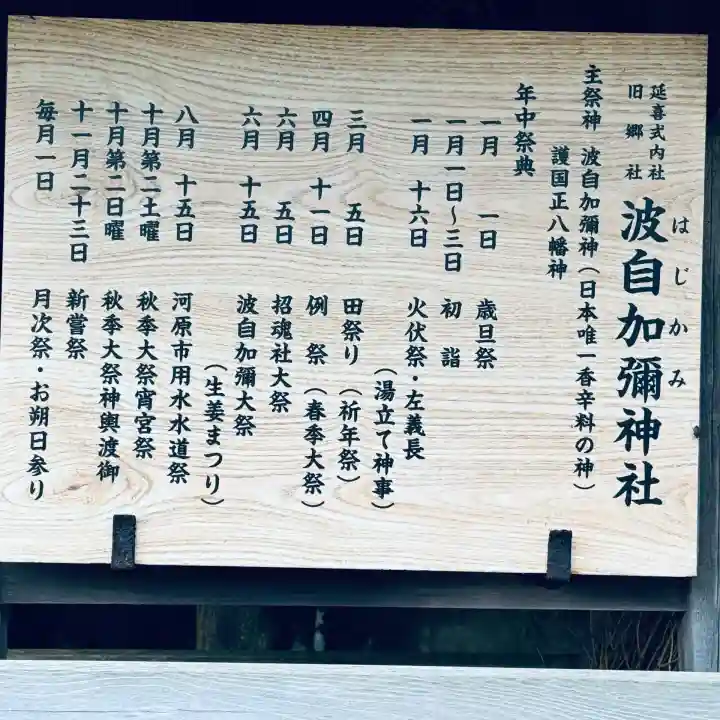 延喜式内社
旧郷社
波自加彌神社
はじかみ
主祭神 波自加彌神(日本唯一香辛料の神)
護国正八幡神
年中祭典
一月 一日 歳旦祭
一月一日～三日 初詣
一月 十六日 火伏祭・左義長
(湯立て神事)
三月 五日 田祭り(祈年祭)
四月 十一日 例祭(春季大祭)
六月 五日 招魂社大祭
六月 十五日 波自加彌大祭
(生姜まつり)
八月 十五日 河原市用水水道祭
十月第二土曜 秋季大祭宵宮祭
十月第二日曜 秋季大祭神輿渡御
十一月二十三日 新嘗祭
毎月一日 月次祭・お朔日参り